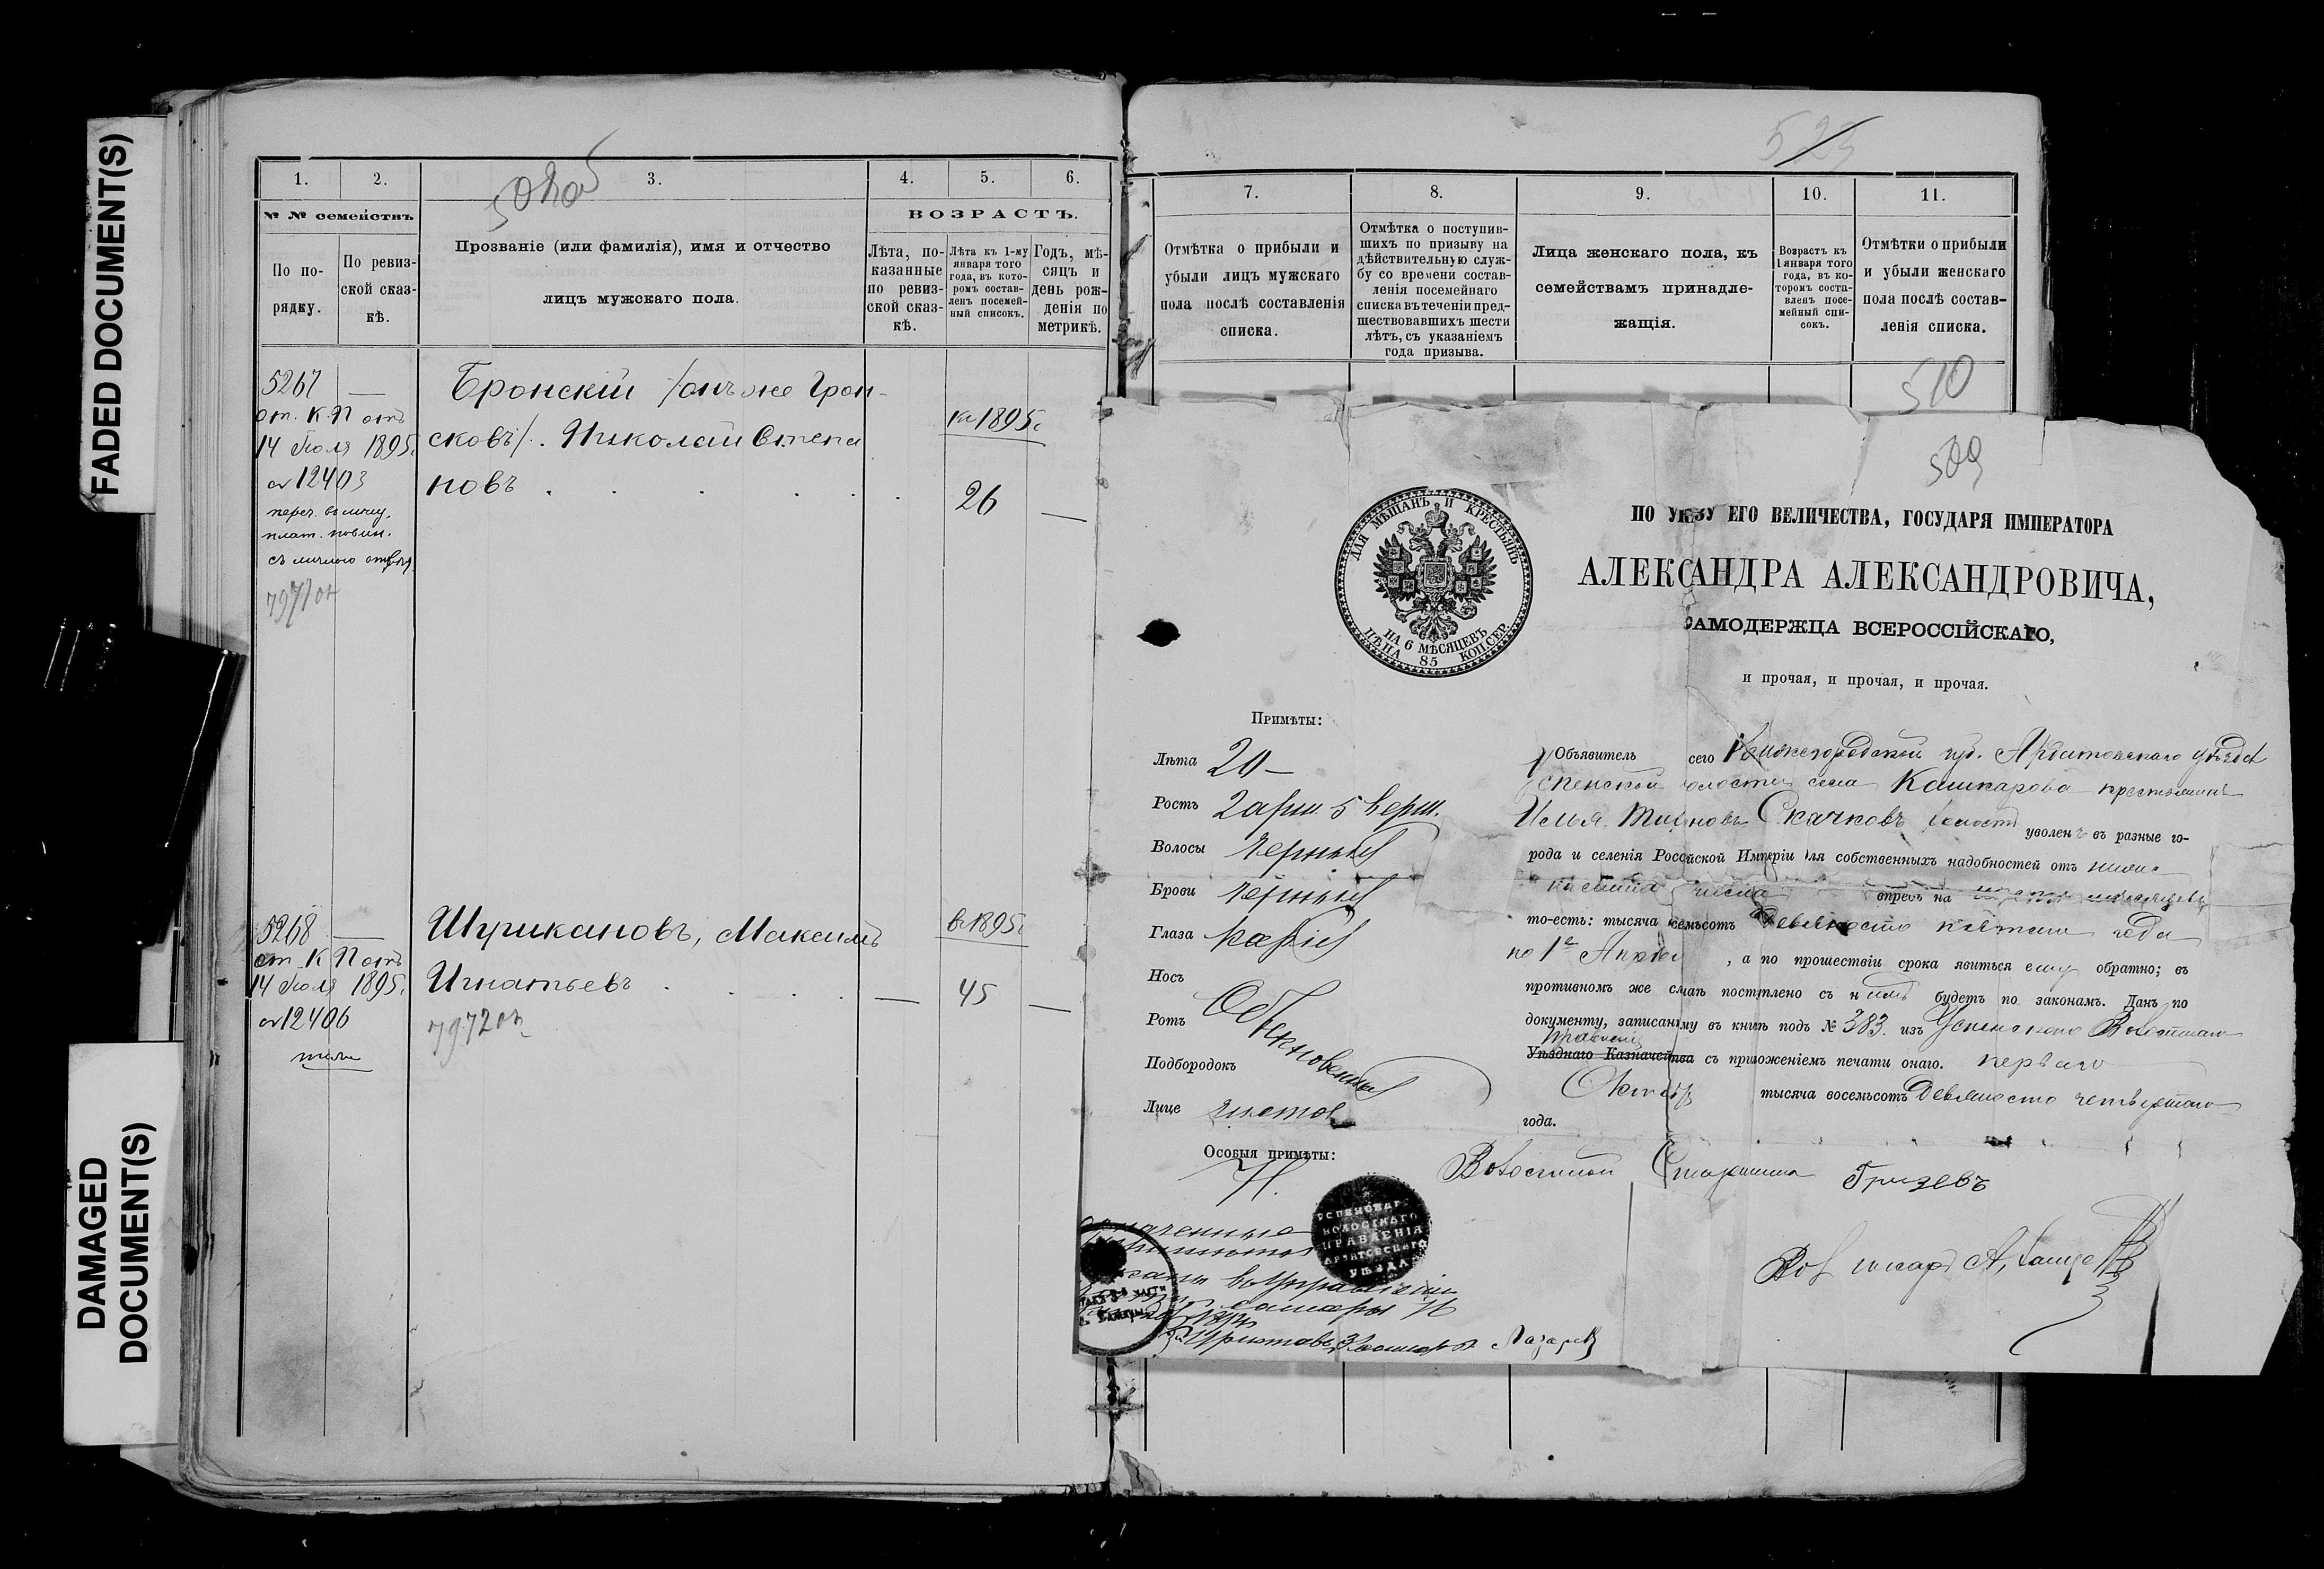 FADED DOCUMENT(S)
DAMAGED
DOCUMENT(S)
1.
2.
3.
4.
5.
6.
№ № семействъ
ВОЗРАСТЪ.
По по-
рядку.
По ревиз-
ской сказ-
кѣ.
Прозваніе (или фамилія), имя и отчество
лицъ мужскаго пола.
Лѣта, по-
казанные
по ревиз-
ской сказ-
кѣ.
Лѣта къ 1-му
января того
года, въ кото-
ромъ состав-
ленъ посемей-
ный списокъ.
Годъ, мѣ-
сяцъ и
день рож-
денія по
метрикѣ.
5267 —
от. К. П отъ
14 Іюля 1895г.
№ 12403
плат. повин.
Бронскій /онъ же Грон-
сковъ/. Николай Степа
новъ
1895г.
26 —
5268 —
от. К П отъ
14 Іюля 1895г.
№ 12406
Шуrикановъ, Максимъ
Игнатьевъ
7972
въ 1895г.
— 45 —
523
7.
8.
9.
10.
11.
Отмѣтка о прибыли и
убыли лицъ мужскаго
пола послѣ составленія
списка.
Отмѣтка о поступив-
шихъ по призыву на
дѣйствительную служ-
бу со времени состав-
ленія посемейнаго
списка въ теченіи пред-
шествовавшихъ шести
лѣтъ, съ указаніемъ
года призыва.
Лица женскаго пола, къ
семействамъ принадле-
жащія.
Возрастъ къ
1 января того
года, въ ко-
торомъ соста-
вленъ посе-
мейный спи-
сокъ.
Отмѣтки о прибыли
и убыли женскаго
пола послѣ состав-
ленія списка.
510
509
ДЛЯ МѢЩАНЪ И КРЕСТЬЯНЪ
НА 6 МѢСЯЦЕВЪ
ЦѢНА 85 КОП. СЕР.
ПО УКАЗУ ЕГО ВЕЛИЧЕСТВА, ГОСУДАРЯ ИМПЕРАТОРА
АЛЕКСАНДРА АЛЕКСАНДРОВИЧА,
САМОДЕРЖЦА ВСЕРОССІЙСКАГО,
и прочая, и прочая, и прочая.
Примѣты:
Лѣта 20 —
Ростъ 2 арш. 5 верш.
Волосы черные
Брови черные
Глаза каріе
Носъ
Ротъ Обыкновенные
Подбородокъ
Лице чистое
Особыя примѣты:
Н.
Объявитель сего Нижегородской губ. Ардатовскаго уѣзда
Успенской волости села Кошкарова крестьянинъ
Илья Скачковъ уволенъ въ разные го-
рода и селенія Россійской Имперіи для собственныхъ надобностей отъ ниже
числа впредь на мѣсяцевъ
то-есть: тысяча восемьсотъ девяносто пятаго года
по 1е Апрѣля, а по прошествіи срока явиться ему обратно; въ
противномъ же случаѣ поступлено съ нимъ будетъ по законамъ. Данъ по
документу, записанному въ книгѣ подъ № 383. изъ Успенскаго Волостнаго
Правленія
Уѣзднаго Казначейства съ приложеніемъ печати онаго. перваго
Октября тысяча восемьсотъ девяносто четвертаго
года.
Волостной Старшина Гризевъ
УСПЕНСКАГО
ВОЛОСТНАГО
ПРАВЛЕНІЯ
АРДАТОВСКАГО
УѢЗДА